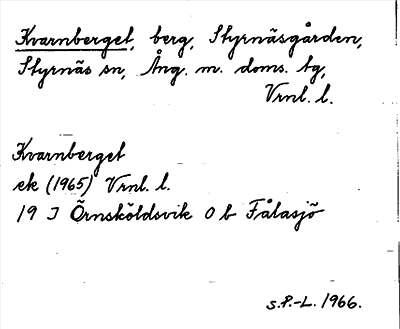 Kvarnberget, berg, Styrnäsgården,
Styrnäs sn, Ång. m. doms. tg,
Vrnl. l.
Kvarnberget
ek (1965) Vrnl. l.
19 J Örnsköldsvik 0 b Fålasjö
S.P.-L. 1966.